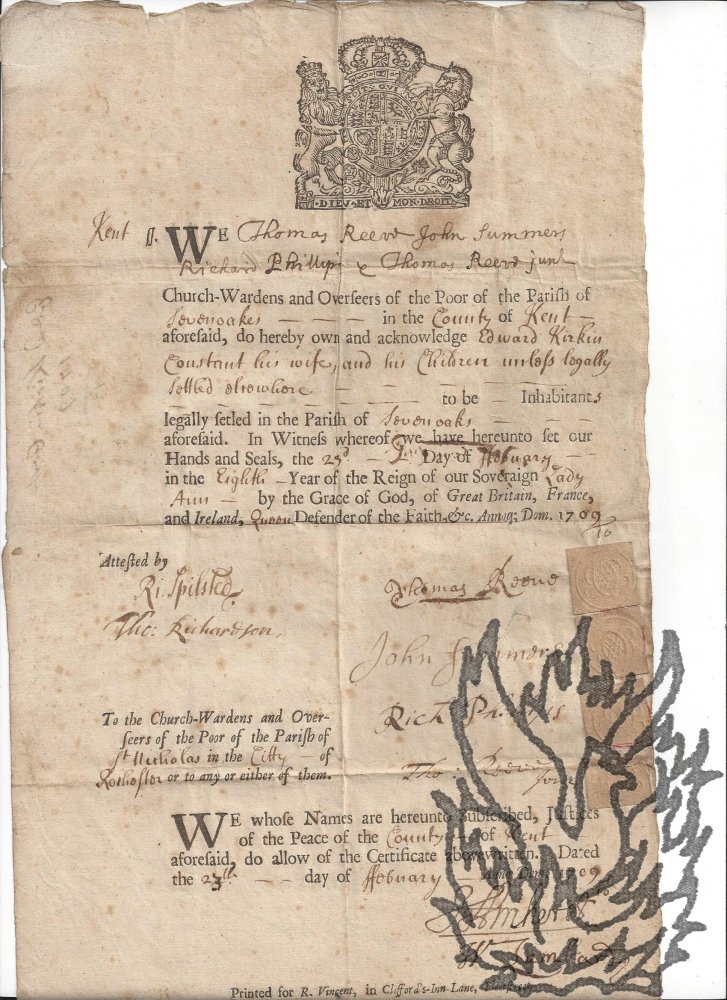 DIEV·ET MON·DROIT
Kent ss. WE Thomas Reeve John Summers
Richard Phillips & Thomas Reeve junr
Church-Wardens and Overseers of the Poor of the Parish of
Sevenoakes — — — in the County of Kent —
aforesaid, do hereby own and acknowledge Edward Kirkin
Constant his wife, and his Children unless legally
settled elsewhere — — — to be — Inhabitants
legally setled in the Parish of Sevenoaks — —
aforesaid. In Witness whereof we have hereunto set our
Hands and Seals, the 23d — Day of ffebuary —
in the Eighth — Year of the Reign of our Soveraign Lady
Ann — by the Grace of God, of Great Britain, France,
and Ireland, Queen Defender of the Faith, &c. Annoq; Dom. 1709
/10
Attested by
Ri: Spilsted.
Tho: Richardson.
Thomas Reeve
John Summers
Rich Phillips
Tho: Reeve
junr
To the Church-Wardens and Over-
seers of the Poor of the Parish of
St Nicholas in the Citty of
Rochester or to any or either of them.
WE whose Names are hereunto Subscribed, Justices
of the Peace of the County of Kent
aforesaid, do allow of the Certificate abovewritten. Dated
the 23th — — day of ffebuary Anno Dom. 1709
/10
Printed for R. Vincent, in Clifford's-Inn-Lane, Fleetstreet